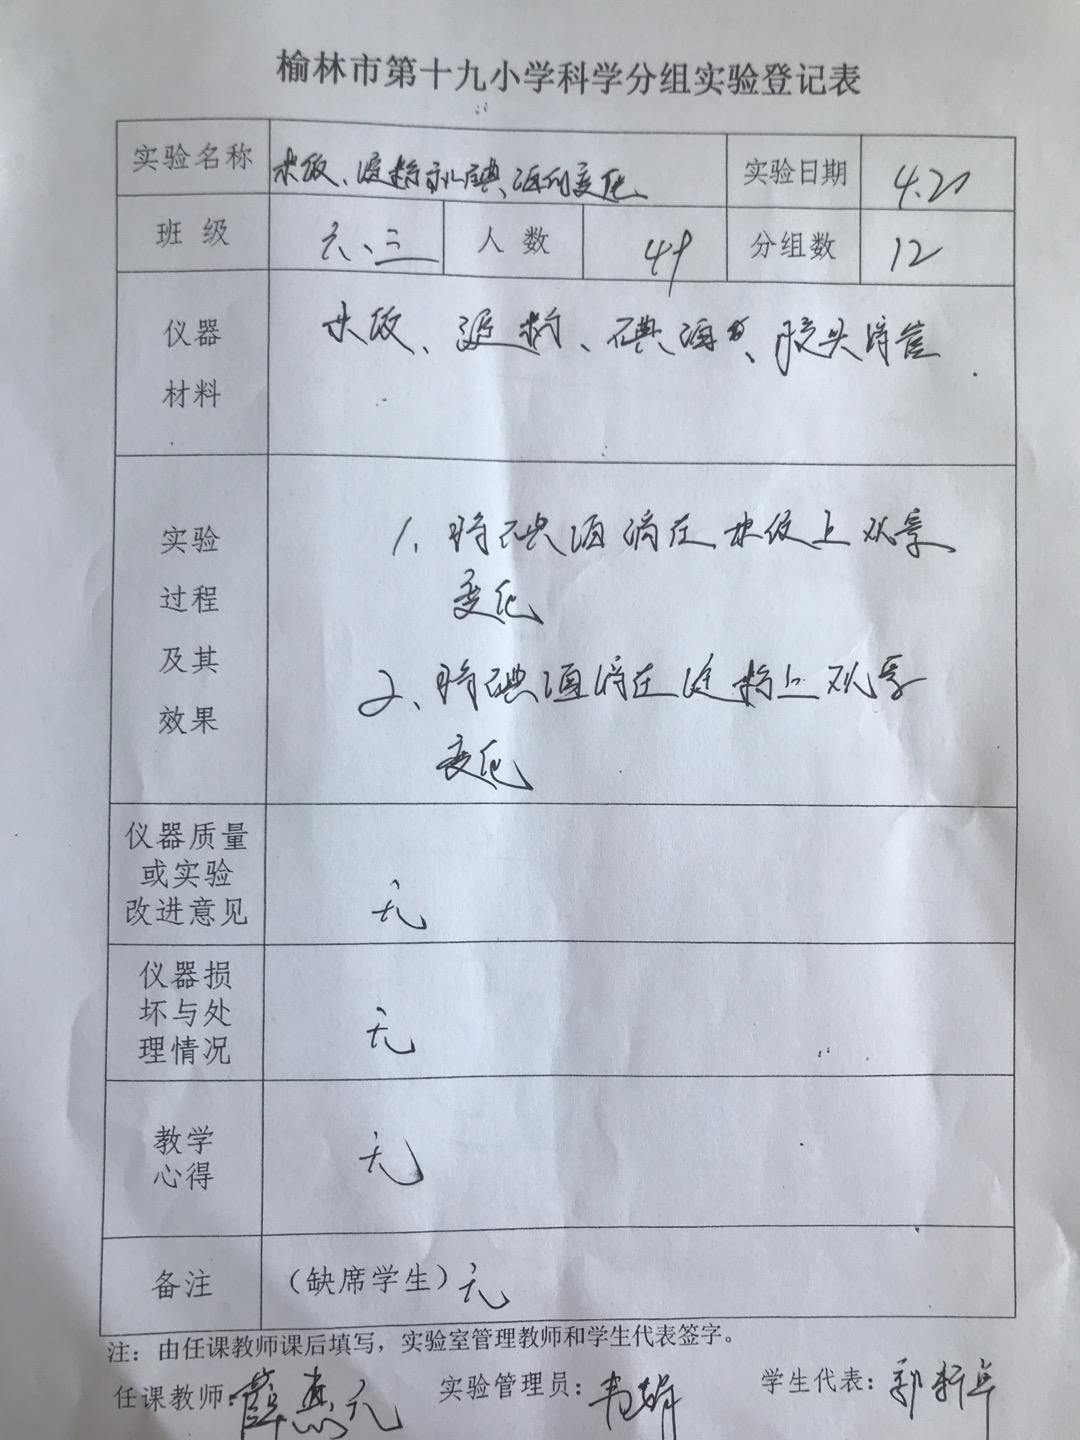 榆林市第十九小学科学分组实验登记表
实验名称 米饭、淀粉和碘酒的变化 实验日期 4.21
班级 六、三 人数 49 分组数 12
仪器 米饭、淀粉、碘酒、胶头滴管
材料
实验 1、将碘酒滴在米饭上观察
过程 变化
及其 2、将碘酒滴在淀粉上观察
效果 变化
仪器质量
或实验
改进意见 无
仪器损
坏与处 无
理情况
教学 无
心得
备注 （缺席学生）无
注：由任课教师课后填写，实验室管理教师和学生代表签字。
任课教师： 实验管理员：韦娟 学生代表：